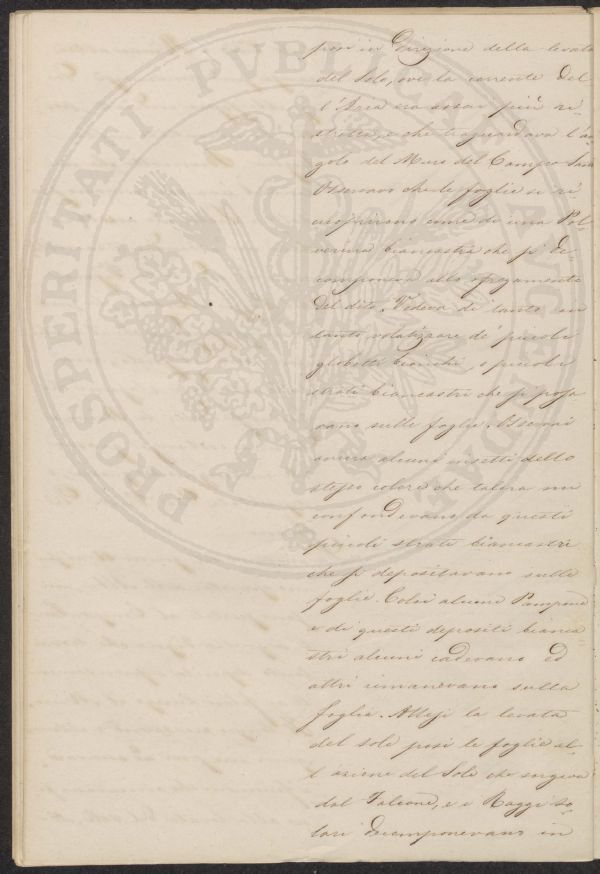 posi in Direzione della levata
del Sole, ove la corrente del
l'Aria era assai più ri
stretta, e che traguardava l'an
golo del Muro del Campo San
Osservavo che le foglie si ri
coprirono come di una Pol-
verina biancastra che si de
componeva allo sfregamento
del dito. Vedeva di tanto in
tanto, volatizare de' piccoli
globetti bianchi, o piccoli
strati biancastri che si posa
vano sulle foglie. Osservai
ancora alcuni insetti dello
stesso colore che talora mi
confondevano da questi
piccoli strati biancastri
che si depositavano sulle
foglie. Colsi alcuni Pampani
e di questi depositi bianca
stri alcuni cadevano ed
altri rimanevano sulla
foglia. Attesi la levata
del sole posi le foglie al-
l'azione del Sole che sorgeva
dal Falcone, e i Raggi so-
lari decomponevano in
PROSPERITATI PUBLICAE AUGENDAE